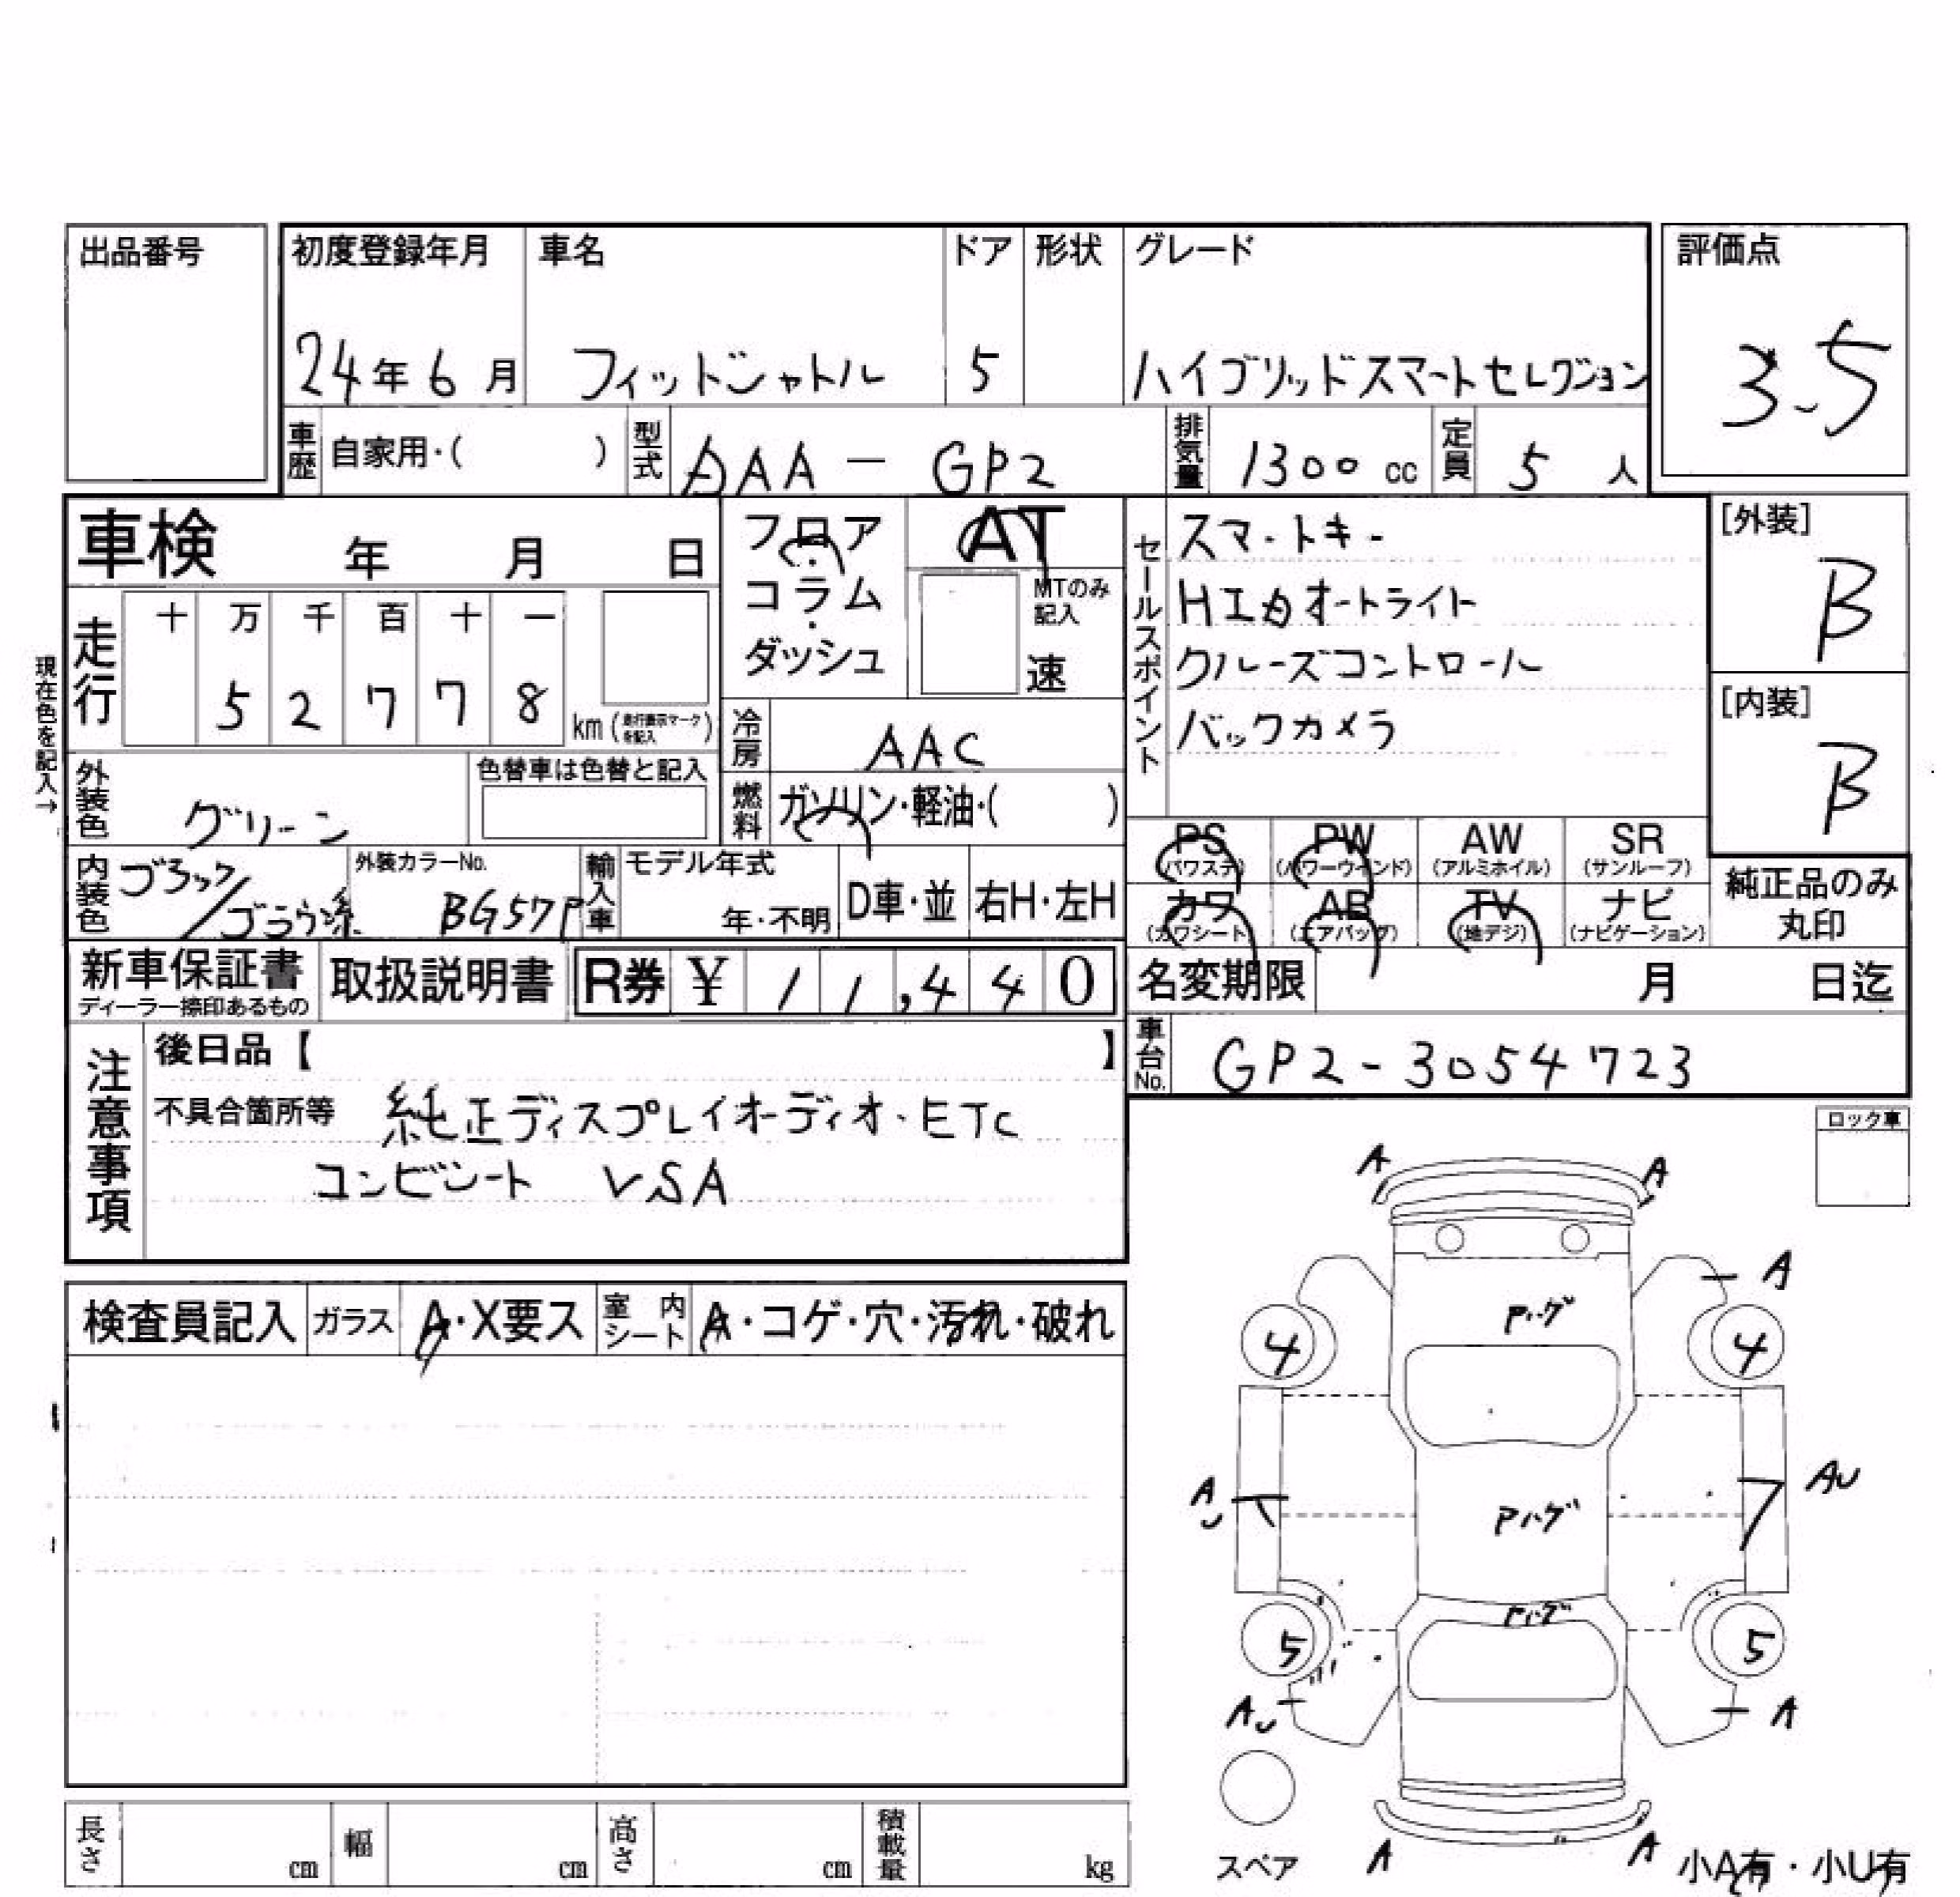 出品番号
初度登録年月 車名 ドア 形状 グレード
評価点
24年6月 フィットシャトル 5 ハイブリッドスマートセレクション
3.5
車歴 自家用・( ) 型式 DAA - GP2 排気量 1300 cc 定員 5 人
車検 年 月 日
フロア・コラム・ダッシュ
AT
MTのみ記入
速
セールスポイント
スマートキー
HIDオートライト
クルーズコントロール
バックカメラ
[外装]
B
[内装]
B
現在色を記入→
走行 十 万 千 百 十 一
5 2 7 7 8 km (走行表示マークを記入)
冷房 AAC
燃料 ガソリン・軽油・( )
外装色 グリーン
色替車は色替と記入
内装色 ブラック/ブラウン系
外装カラーNo. BG57P
輸入車 モデル年式
年・不明 D車・並 右H・左H
PS (パワステ) PW (パワーウインド) AW (アルミホイル) SR (サンルーフ)
カワ (カワシート) AB (エアバッグ) TV (地デジ) ナビ (ナビゲーション)
純正品のみ
丸印
新車保証書 取扱説明書 R券 ¥ 11,440
ディーラー捺印あるもの
名変期限 月 日迄
車台No. GP2-3054723
注意事項
後日品【 】
不具合箇所等 純正ディスプレイオーディオ・ETC
コンビシート VSA
ロック車
検査員記入 ガラス A・X要ス 室内シート A・コゲ・穴・汚れ・破れ
A A
A
Pハゲ
4 4
A
U
Pハゲ
AU
Pハゲ
5 5
AU A
スペア
A A
小A有・小U有
長さ cm 幅 cm 高さ cm 積載量 kg